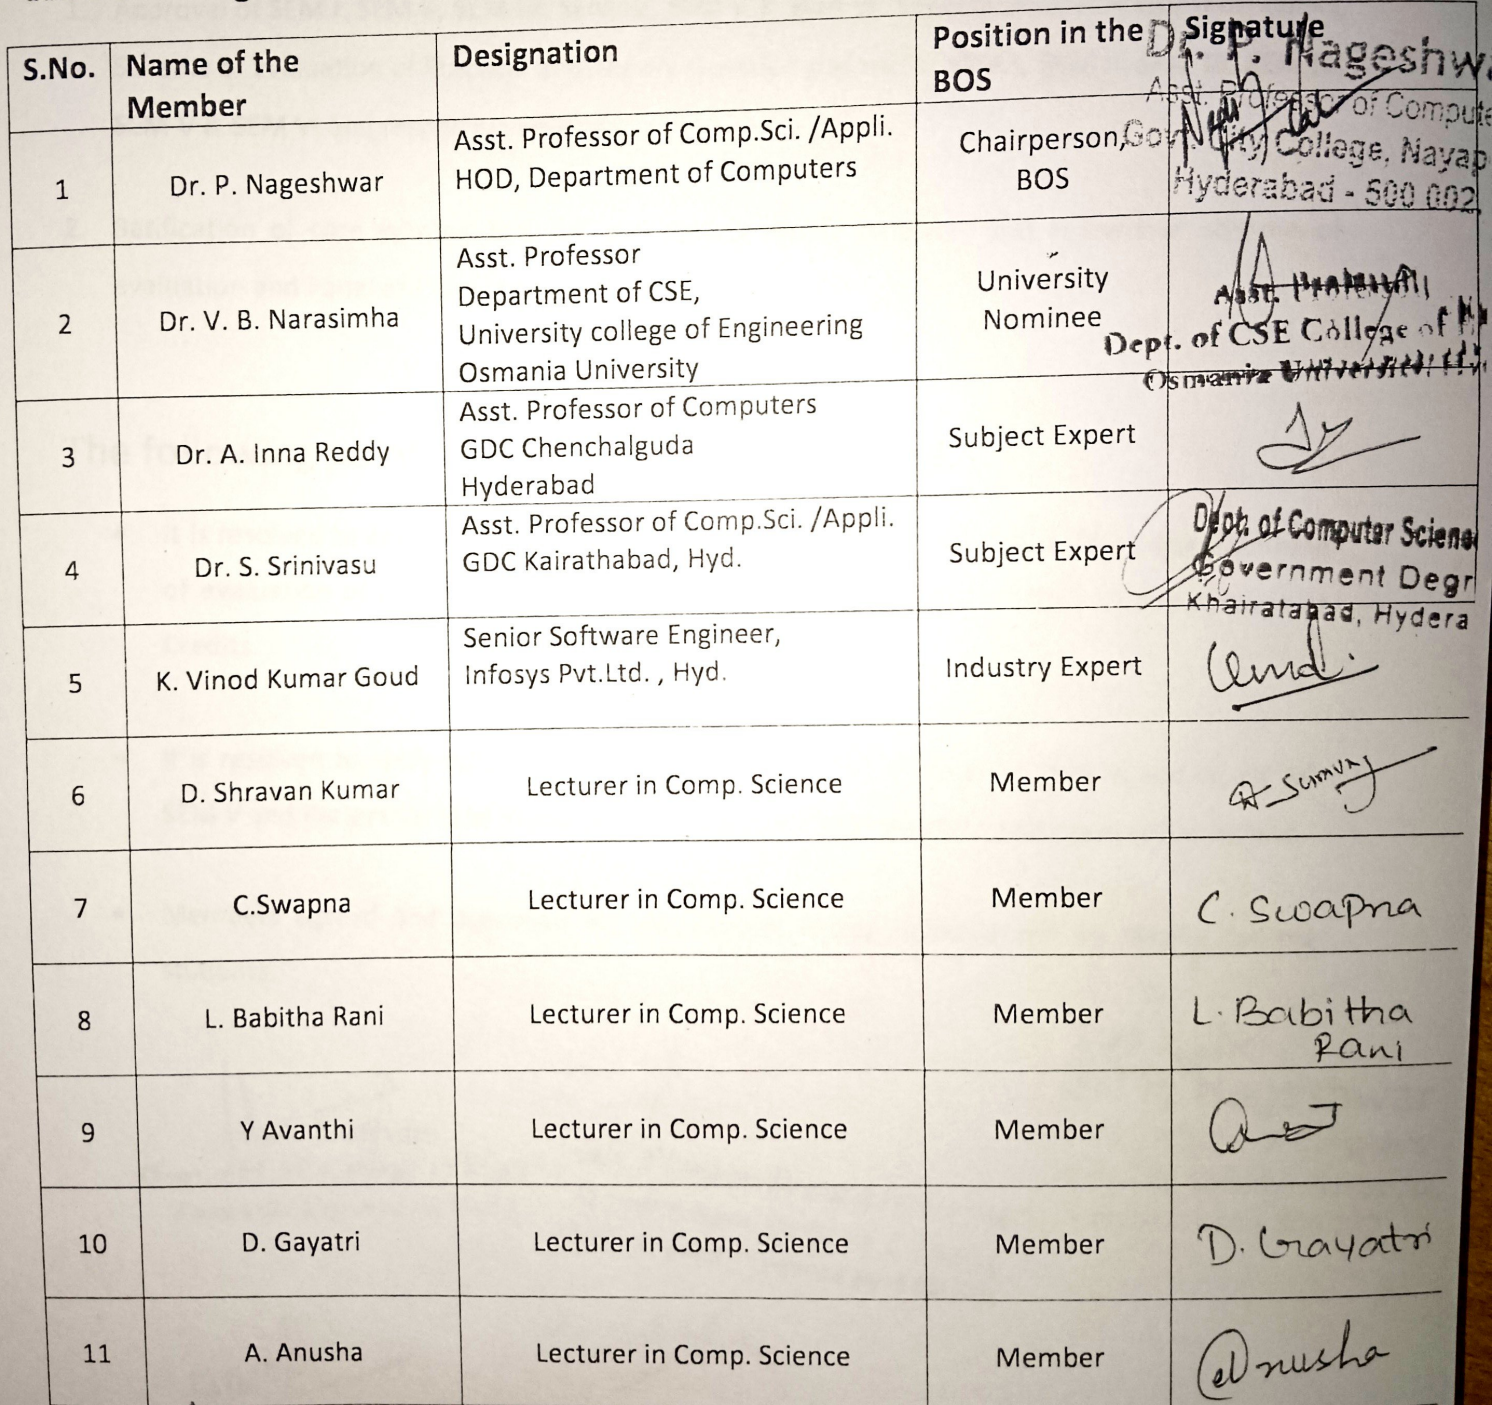 S.No.
Name of the
Member
Designation
Position in the
BOS
Signature
Dr. P. Nageshwa
Asst. Professor of Compute
Govt. City College, Nayap
Hyderabad - 500 002
1
Dr. P. Nageshwar
Asst. Professor of Comp.Sci. /Appli.
HOD, Department of Computers
Chairperson,
BOS
2
Dr. V. B. Narasimha
Asst. Professor
Department of CSE,
University college of Engineering
Osmania University
University
Nominee
Asst. Professor
Dept. of CSE College of
Osmania University
3
Dr. A. Inna Reddy
Asst. Professor of Computers
GDC Chenchalguda
Hyderabad
Subject Expert
4
Dr. S. Srinivasu
Asst. Professor of Comp.Sci. /Appli.
GDC Kairathabad, Hyd.
Subject Expert
Dept. of Computer Scienc
Government Degr
Khairatabad, Hydera
5
K. Vinod Kumar Goud
Senior Software Engineer,
Infosys Pvt.Ltd. , Hyd.
Industry Expert
6
D. Shravan Kumar
Lecturer in Comp. Science
Member
7
C.Swapna
Lecturer in Comp. Science
Member
C. Swapna
8
L. Babitha Rani
Lecturer in Comp. Science
Member
L. Babitha
Rani
9
Y Avanthi
Lecturer in Comp. Science
Member
10
D. Gayatri
Lecturer in Comp. Science
Member
D. Gayatri
11
A. Anusha
Lecturer in Comp. Science
Member
Anusha